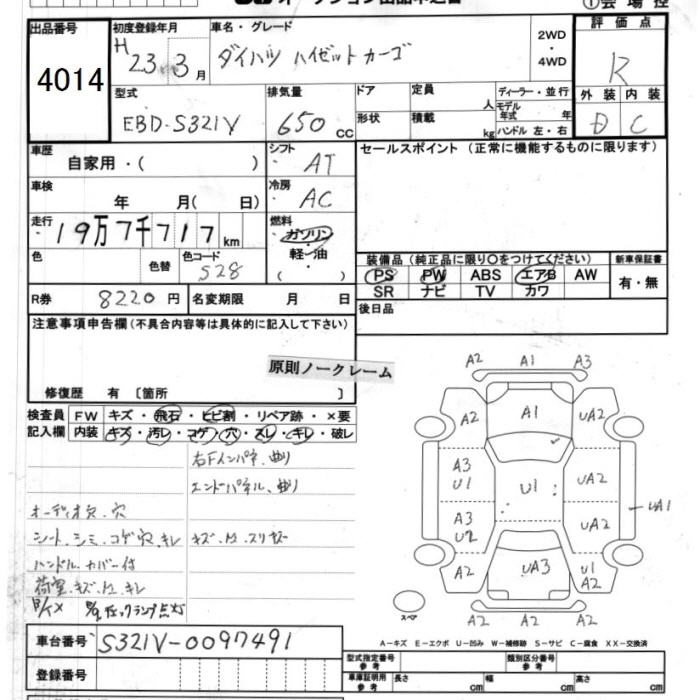 出品番号 初度登録年月 車名・グレード 評価点
4014 H 23 3月 ダイハツ ハイゼットカーゴ 2WD・4WD R
型式 排気量 ドア 定員 人 ディーラー・並行 外装 内装
EBD-S321V 650 cc 形状 積載 kg モデル年式 年 ハンドル 左・右 D C
車歴 自家用・( ) シフト AT セールスポイント (正常に機能するものに限ります)
車検 年 月( 日) 冷房 AC
走行 19万7千717km 燃料 ガソリン・軽・油 ( ・ )
色 色替 色コード S28 装備品 (純正品に限り○をつけてください) 新車保証書
PS PW ABS エアB AW 有・無
SR ナビ TV カワ
R券 8220円 名変期限 月 日 後日品
注意事項申告欄(不具合内容等は具体的に記入して下さい)
原則ノークレーム
修復歴 有 〔箇所 〕
検査員 FW キズ・飛石・ヒビ割・リペア跡・×要
記入欄 内装 キズ・汚レ・コゲ・穴・スレ・キレ・破レ
右Fインパネ、曲り
エンドパネル、曲り
オーディオ穴、穴
シート、シミ、コゲ穴、キレ キズ、凹、スリキズ
ハンドル、カバー付
荷室、キズ、凹、キレ
チェックランプ点灯
車台番号 S321V-0097491
登録番号
A2 A1 A3
A2 A1 UA2
A3 U1 U1 UA2
A3 U2 UA2 UA1
A2 UA3 U1 A2
A2 A2 A2
スペア
A-キズ E-エクボ U-凹み W-補修跡 S-サビ C-腐食 XX-交換済
型式指定番号 参考 類別区分番号 参考
車庫証明用 参考 長さ cm 幅 cm 高さ cm